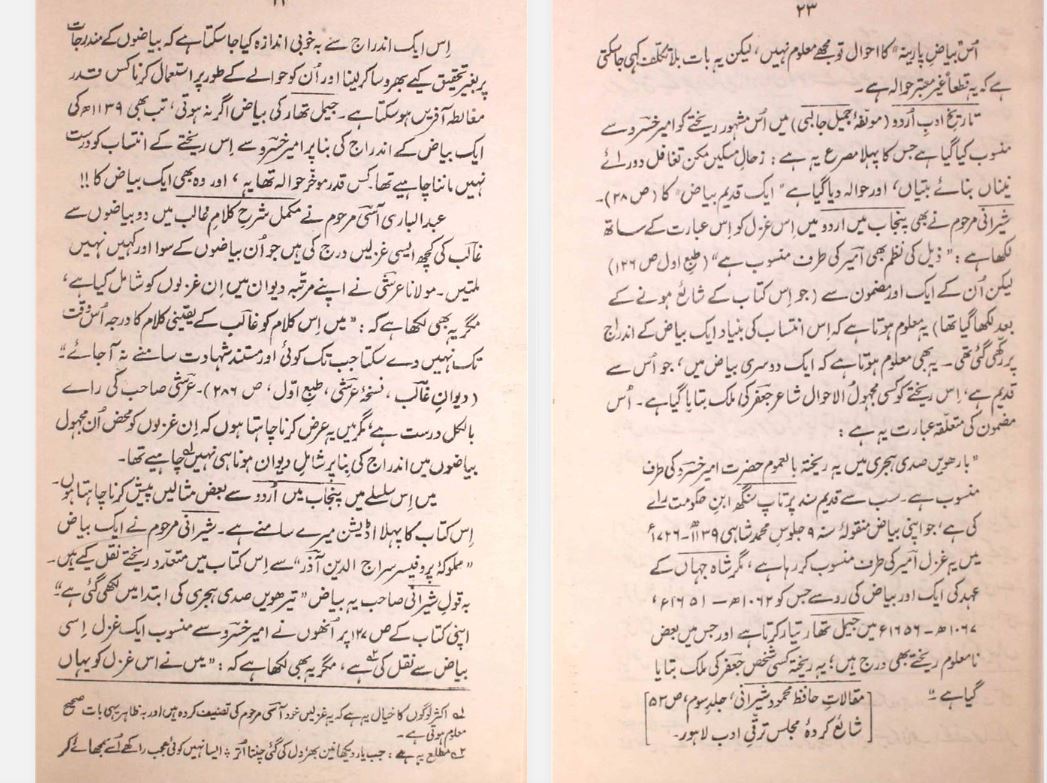 ۲۳
اُس "بیاضِ پارینہ" کا احوال تو مجھے معلوم نہیں، لیکن یہ بات بلا تکلف کہی جا سکتی
ہے کہ یہ قطعاً غیر معتبر حوالہ ہے۔
تاریخِ ادبِ اُردو (مولفۂ جمیل جالبی) میں اُس مشہور ریختے کو امیر خسرو سے
منسوب کیا گیا ہے جس کا پہلا مصرع یہ ہے: زحالِ مسکیں مکن تغافل دوراے
نیناں بنائے بتیاں، اور حوالہ دیا گیا ہے "ایک قدیم بیاض" کا (ص ۲۸)۔
شیرانی مرحوم نے بھی پنجاب میں اردو میں اِس غزل کو اِس عبارت کے ساتھ
لکھا ہے: "ذیل کی نظم بھی امیر کی طرف منسوب ہے" (طبعِ اول ص ۱۲۶)
لیکن اُن کے ایک اور مضمون سے (جو اِس کتاب کے شائع ہونے کے
بعد لکھا گیا تھا) یہ معلوم ہوتا ہے کہ اِس انتساب کی بنیاد ایک بیاض کے اندراج
پر رکھی گئی تھی۔ یہ بھی معلوم ہوتا ہے کہ ایک دوسری بیاض میں، جو اُس سے
قدیم ہے، اِس ریختے کو کسی مجہول الاحوال شاعر جعفر کی ملک بتایا گیا ہے۔ اُس
مضمون کی متعلقہ عبارت یہ ہے:
"بارھویں صدی ہجری میں یہ ریختہ بالعموم حضرت امیر خسرو کی طرف
منسوب ہے۔ سب سے قدیم سند پرتاپ سنگھ ابنِ حکومت رائے
کی ہے، جو اپنی بیاض منقولۂ سنہ ۹ جلوسِ محمد شاہی ۱۱۳۹ھ۔۱۷۲۶ء
میں یہ غزل امیر کی طرف منسوب کر رہا ہے، مگر شاہ جہاں کے
عہد کی ایک اور بیاض کی رو سے جس کو ۱۰۶۲ھ۔۱۶۵۱ء،
۱۰۶۷ھ۔۱۶۵۶ء میں جیمل تھار تیار کرتا ہے اور جس میں بعض
نامعلوم ریختے بھی درج ہیں؛ یہ ریختہ کسی شخص جعفر کی ملک بتایا
گیا ہے۔"
[مقالاتِ حافظ محمود شیرانی، جلدِ سوم، ص ۵۲
شائع کردۂ مجلس ترقیِ ادب لاہور۔]
اِس ایک اندراج سے بہ خوبی اندازہ کیا جا سکتا ہے کہ بیاضوں کے مندرجات
پر بغیر تحقیق کیے بھروسا کر لینا اور اُن کو حوالے کے طور پر استعمال کرنا کس قدر
مغالطہ آفریں ہو سکتا ہے۔ جیمل تھار کی بیاض اگر نہ ہوتی، تب بھی ۱۱۳۹ھ کی
ایک بیاض کے اندراج کی بنا پر امیر خسرو سے اِس ریختے کے انتساب کو درست
نہیں ماننا چاہیے تھا۔ کس قدر موخر حوالہ تھا یہ، اور وہ بھی ایک بیاض کا!!
عبدالباری آسی مرحوم نے مکمل شرحِ کلامِ غالب میں دو بیاضوں سے
غالب کی کچھ ایسی غزلیں درج کی ہیں جو اُن بیاضوں کے سوا اور کہیں نہیں
ملتیں۔ مولانا عرشی نے اپنے مرتبہ دیوان میں اِن غزلوں کو شامل کیا ہے،
مگر یہ بھی لکھا ہے کہ: "میں اِس کلام کو غالب کے یقینی کلام کا درجہ اُس وقت
تک نہیں دے سکتا جب تک کوئی اور مستند شہادت سامنے نہ آ جائے۔"
(دیوانِ غالب، نسخۂ عرشی، طبعِ اول، ص ۲۸۶)۔ عرشی صاحب کی راے
بالکل درست ہے، مگر میں یہ عرض کرنا چاہتا ہوں کہ اِن غزلوں کو محض اُن مجہول
بیاضوں میں اندراج کی بنا پر شاملِ دیوان ہونا ہی نہیں چاہیے تھا۔
میں اِس سلسلے میں پنجاب میں اُردو سے بعض مثالیں پیش کرنا چاہتا ہوں۔
اِس کتاب کا پہلا اڈیشن میرے سامنے ہے۔ شیرانی مرحوم نے ایک بیاض
"مملوکۂ پروفیسر سراج الدین آذر" سے اِس کتاب میں متعدد ریختے نقل کیے ہیں۔
بہ قولِ شیرانی صاحب یہ بیاض "تیرھویں صدی ہجری کی ابتدا میں لکھی گئی ہے"
اپنی کتاب کے ص ۱۲۷ پر اُنھوں نے امیر خسرو سے منسوب ایک غزل اِسی
بیاض سے نقل کی ہے، مگر یہ بھی لکھا ہے کہ: "میں نے اس غزل کو یہاں
۱؎ اکثر لوگوں کا خیال یہ ہے کہ یہ غزلیں خود آسی مرحوم کی تصنیف کردہ ہیں اور بہ ظاہر یہی بات صحیح
معلوم ہوتی ہے۔
۲؎ مطلع یہ ہے: جب یار دیکھا نین بھر دل کی گئی چنتا اُتر : ایسا نہیں کوئی عجب راکھے اُسے سمجھائے کر